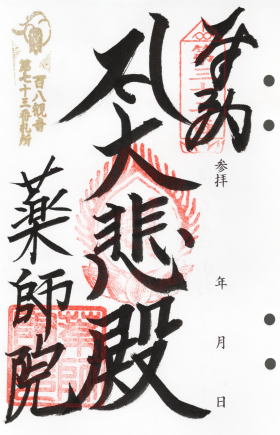 奉納
参拝　年　月　日
大悲殿
百八観音
第七十三番札所
薬師院